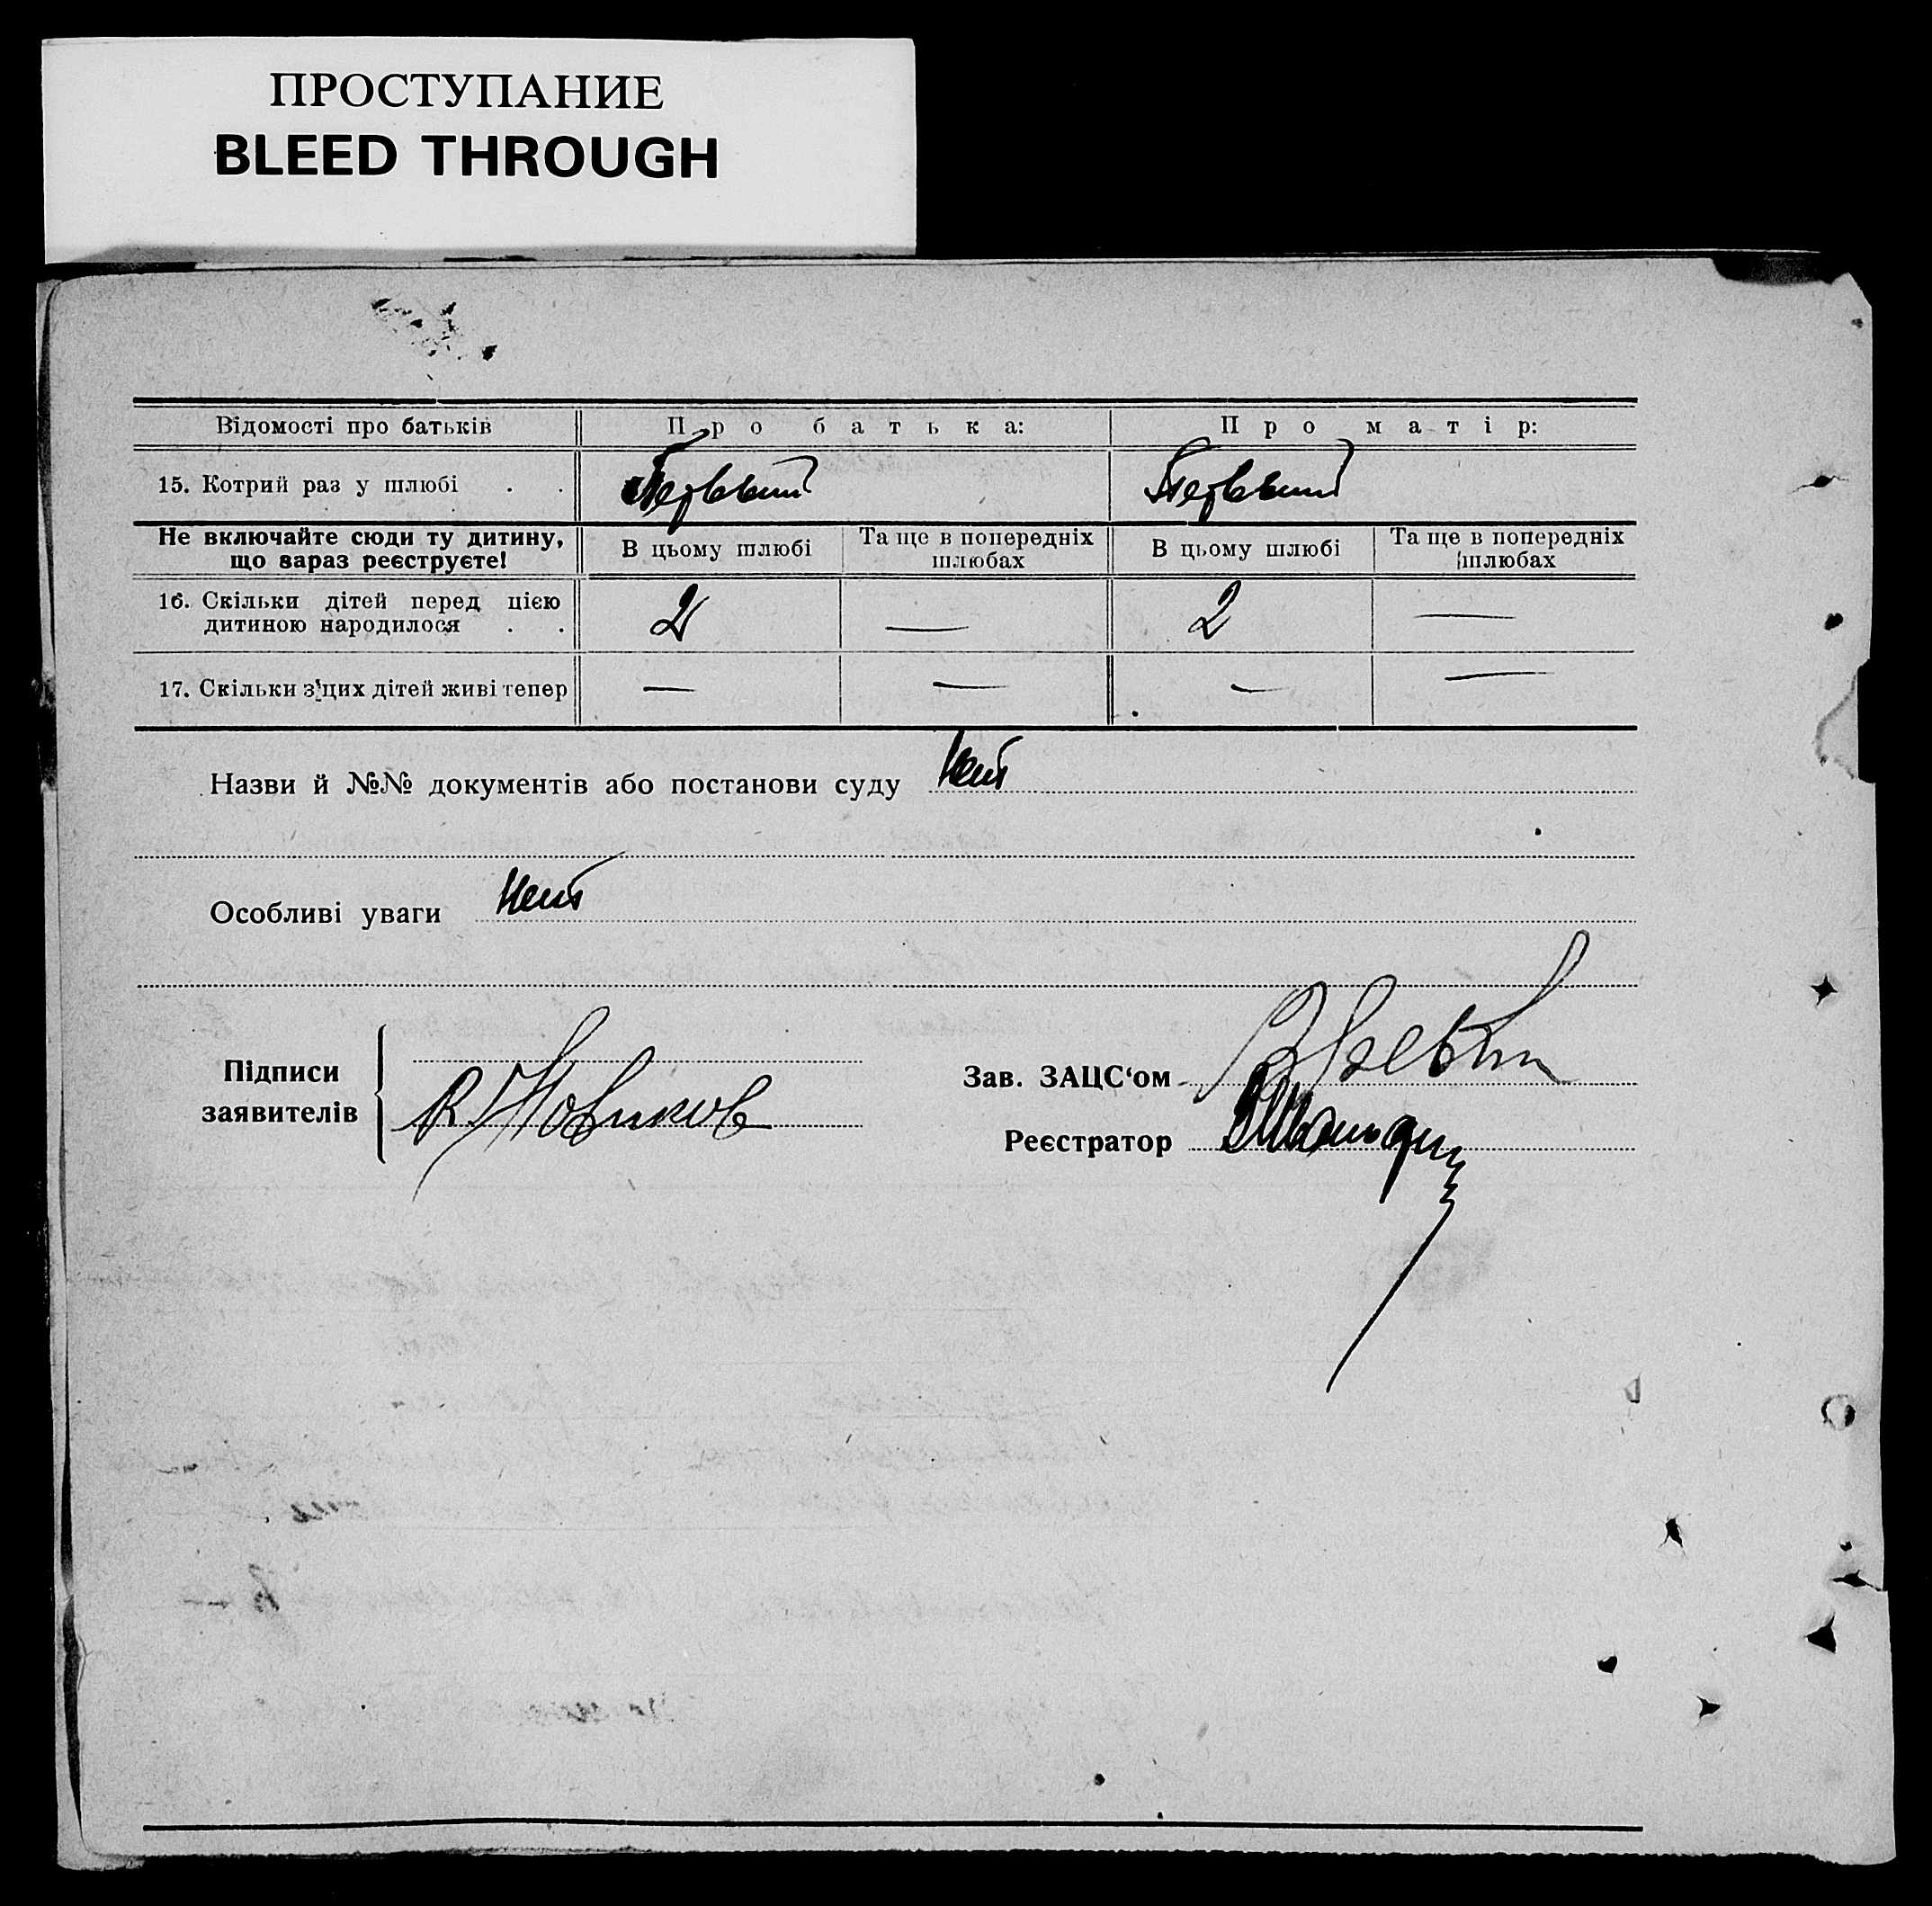 ПРОСТУПАНИЕ
BLEED THROUGH
Відомості про батьків Про батька: Про матір:
15. Котрий раз у шлюбі . . Первый Первый
Не включайте сюди ту дитину, що зараз реєструєте! В цьому шлюбі Та ще в попередніх шлюбах В цьому шлюбі Та ще в попередніх шлюбах
16. Скільки дітей перед цією дитиною народилося . . 2 — 2 —
17. Скільки з цих дітей живі тепер — — — —
Назви й №№ документів або постанови суду нет
Особливі уваги нет
Підписи заявителів
К. Новиков
Зав. ЗАЦС‘ом
Реєстратор